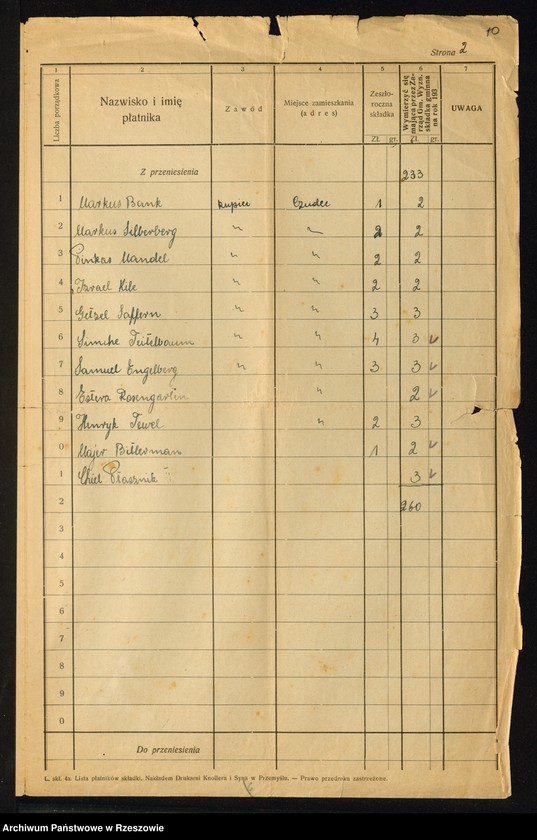 10
Strona 2
1 2 3 4 5 6 7
Liczba porządkowa
Nazwisko i imię
płatnika
Zawód
Miejsce zamieszkania
(adres)
Zeszło-
roczna
składka
Zł. gr.
Wymierzyć się
mająca przez Za-
rząd Gm. Wyzn.
składka gminna
na rok 193
Zł. gr.
UWAGA
Z przeniesienia 233
1 Markus Bank kupiec Czudec 1 2
2 Markus Silberberg " " 2 2
3 Pinkas Mandel " " 2 2
4 Izrael Kile " " 2 2
5 Getzel Saffern " " 3 3
6 Simche Teitelbaum " " 4 3 ✓
7 Samuel Engelberg " " 3 3 ✓
8 Estera Rosengarten " 2 ✓
9 Henryk Tewel " 2 3
0 Majer Bitterman 1 2 ✓
1 Chiel Ptasznik 3 ✓
2 260
3
4
5
6
7
8
9
0
Do przeniesienia
L. skł. 4a. Lista płatników składki. Nakładem Drukarni Knollera i Syna w Przemyślu. — Prawo przedruku zastrzeżone.
Archiwum Państwowe w Rzeszowie